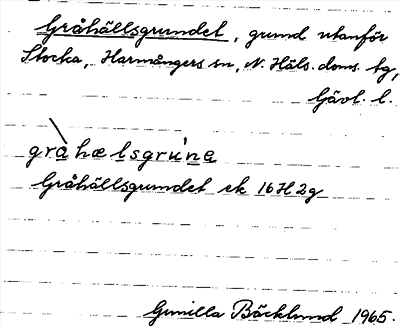 Gråhällsgrundet, grund utanför
Stocka, Harmångers sn, N. Häls. doms. tg,
Gävl. l.
gràhælsgrúnə
Gråhällsgrundet ek 16H2g
Gunilla Bäcklund 1965.